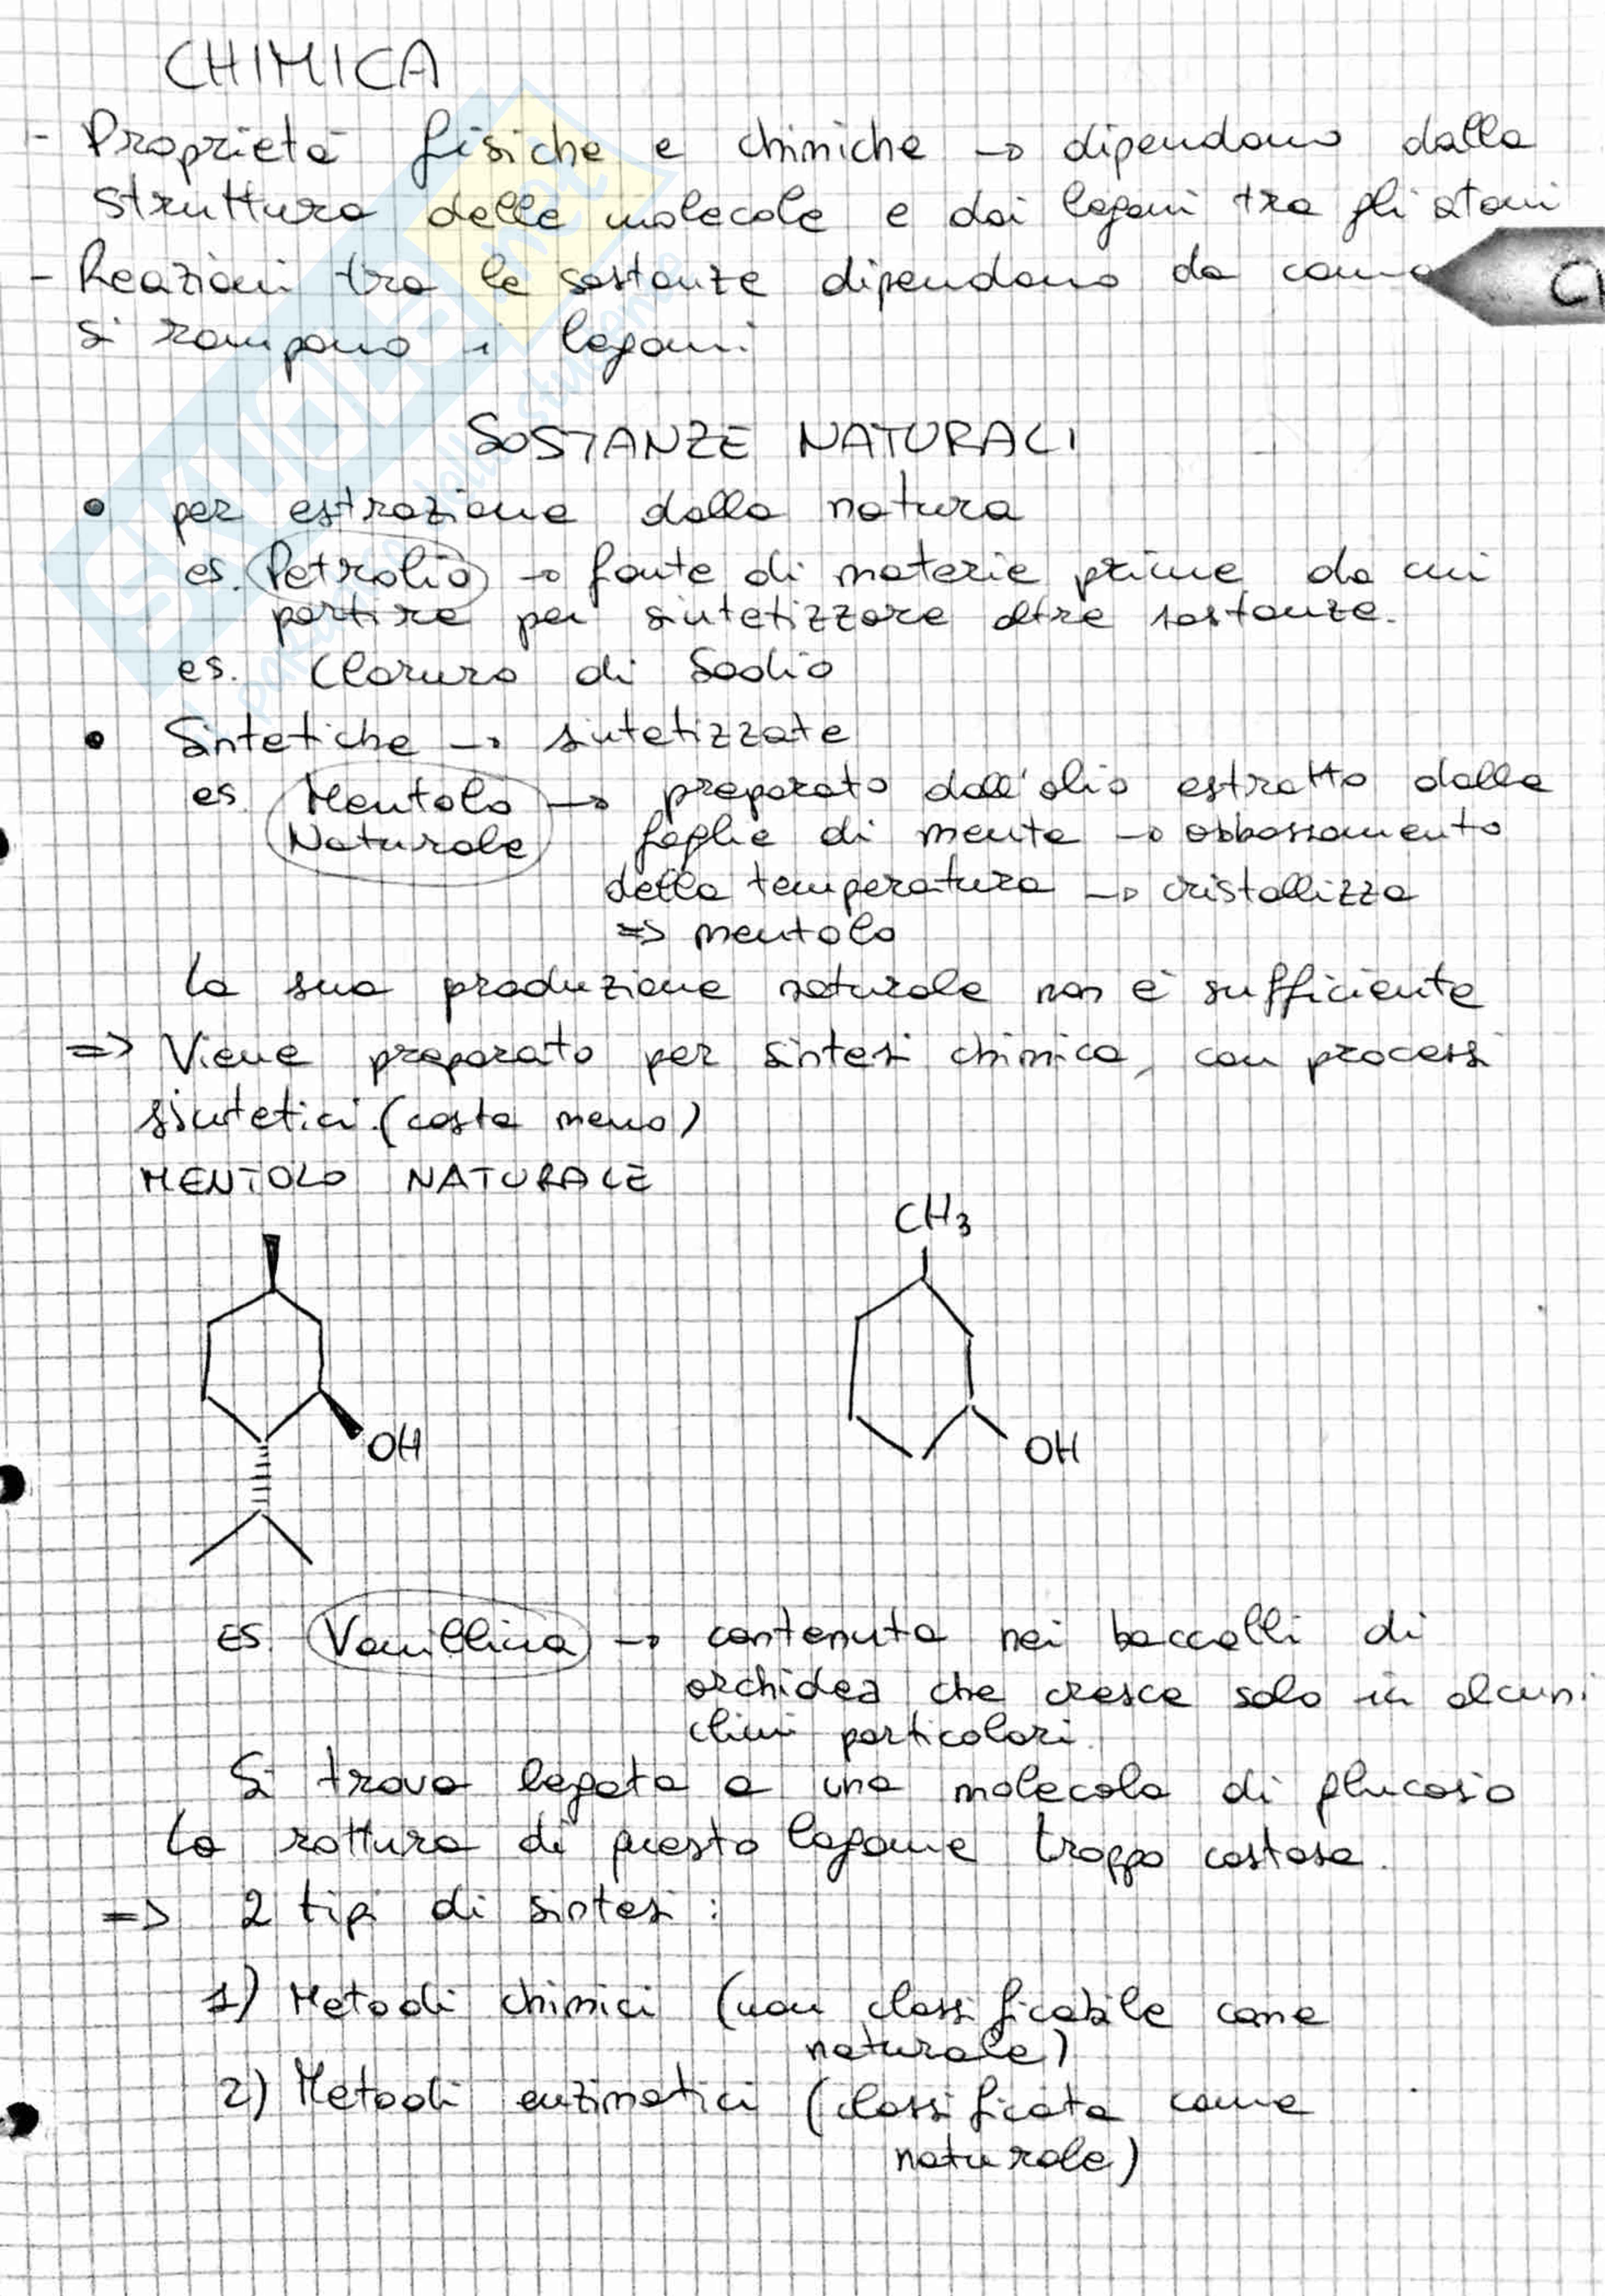 CHIMICA
- Proprietà fisiche e chimiche → dipendono dalla
struttura delle molecole e dai legami tra gli atomi
- Reazioni tra le sostanze dipendono da come
si rompono i legami
SOSTANZE NATURALI
• per estrazione dalla natura
es. Petrolio → fonte di materie prime da cui
partire per sintetizzare altre sostanze.
es. Cloruro di Sodio
• Sintetiche → sintetizzate
es. Mentolo → preparato dall'olio estratto dalle
Naturale foglie di menta → abbassamento
della temperatura → cristallizza
=> mentolo
La sua produzione naturale non è sufficiente
=> Viene preparato per sintesi chimica, con processi
sintetici. (costa meno)
MENTOLO NATURALE
CH3
OH OH
ES. Vanillina → contenuta nei baccelli di
orchidea che cresce solo in alcuni
climi particolari.
Si trova legata a una molecola di glucosio
La rottura di questo legame troppo costosa.
=> 2 tipi di sintesi:
1) Metodi chimici (non classificabile come
naturale)
2) Metodi enzimatici (classificata come
naturale)